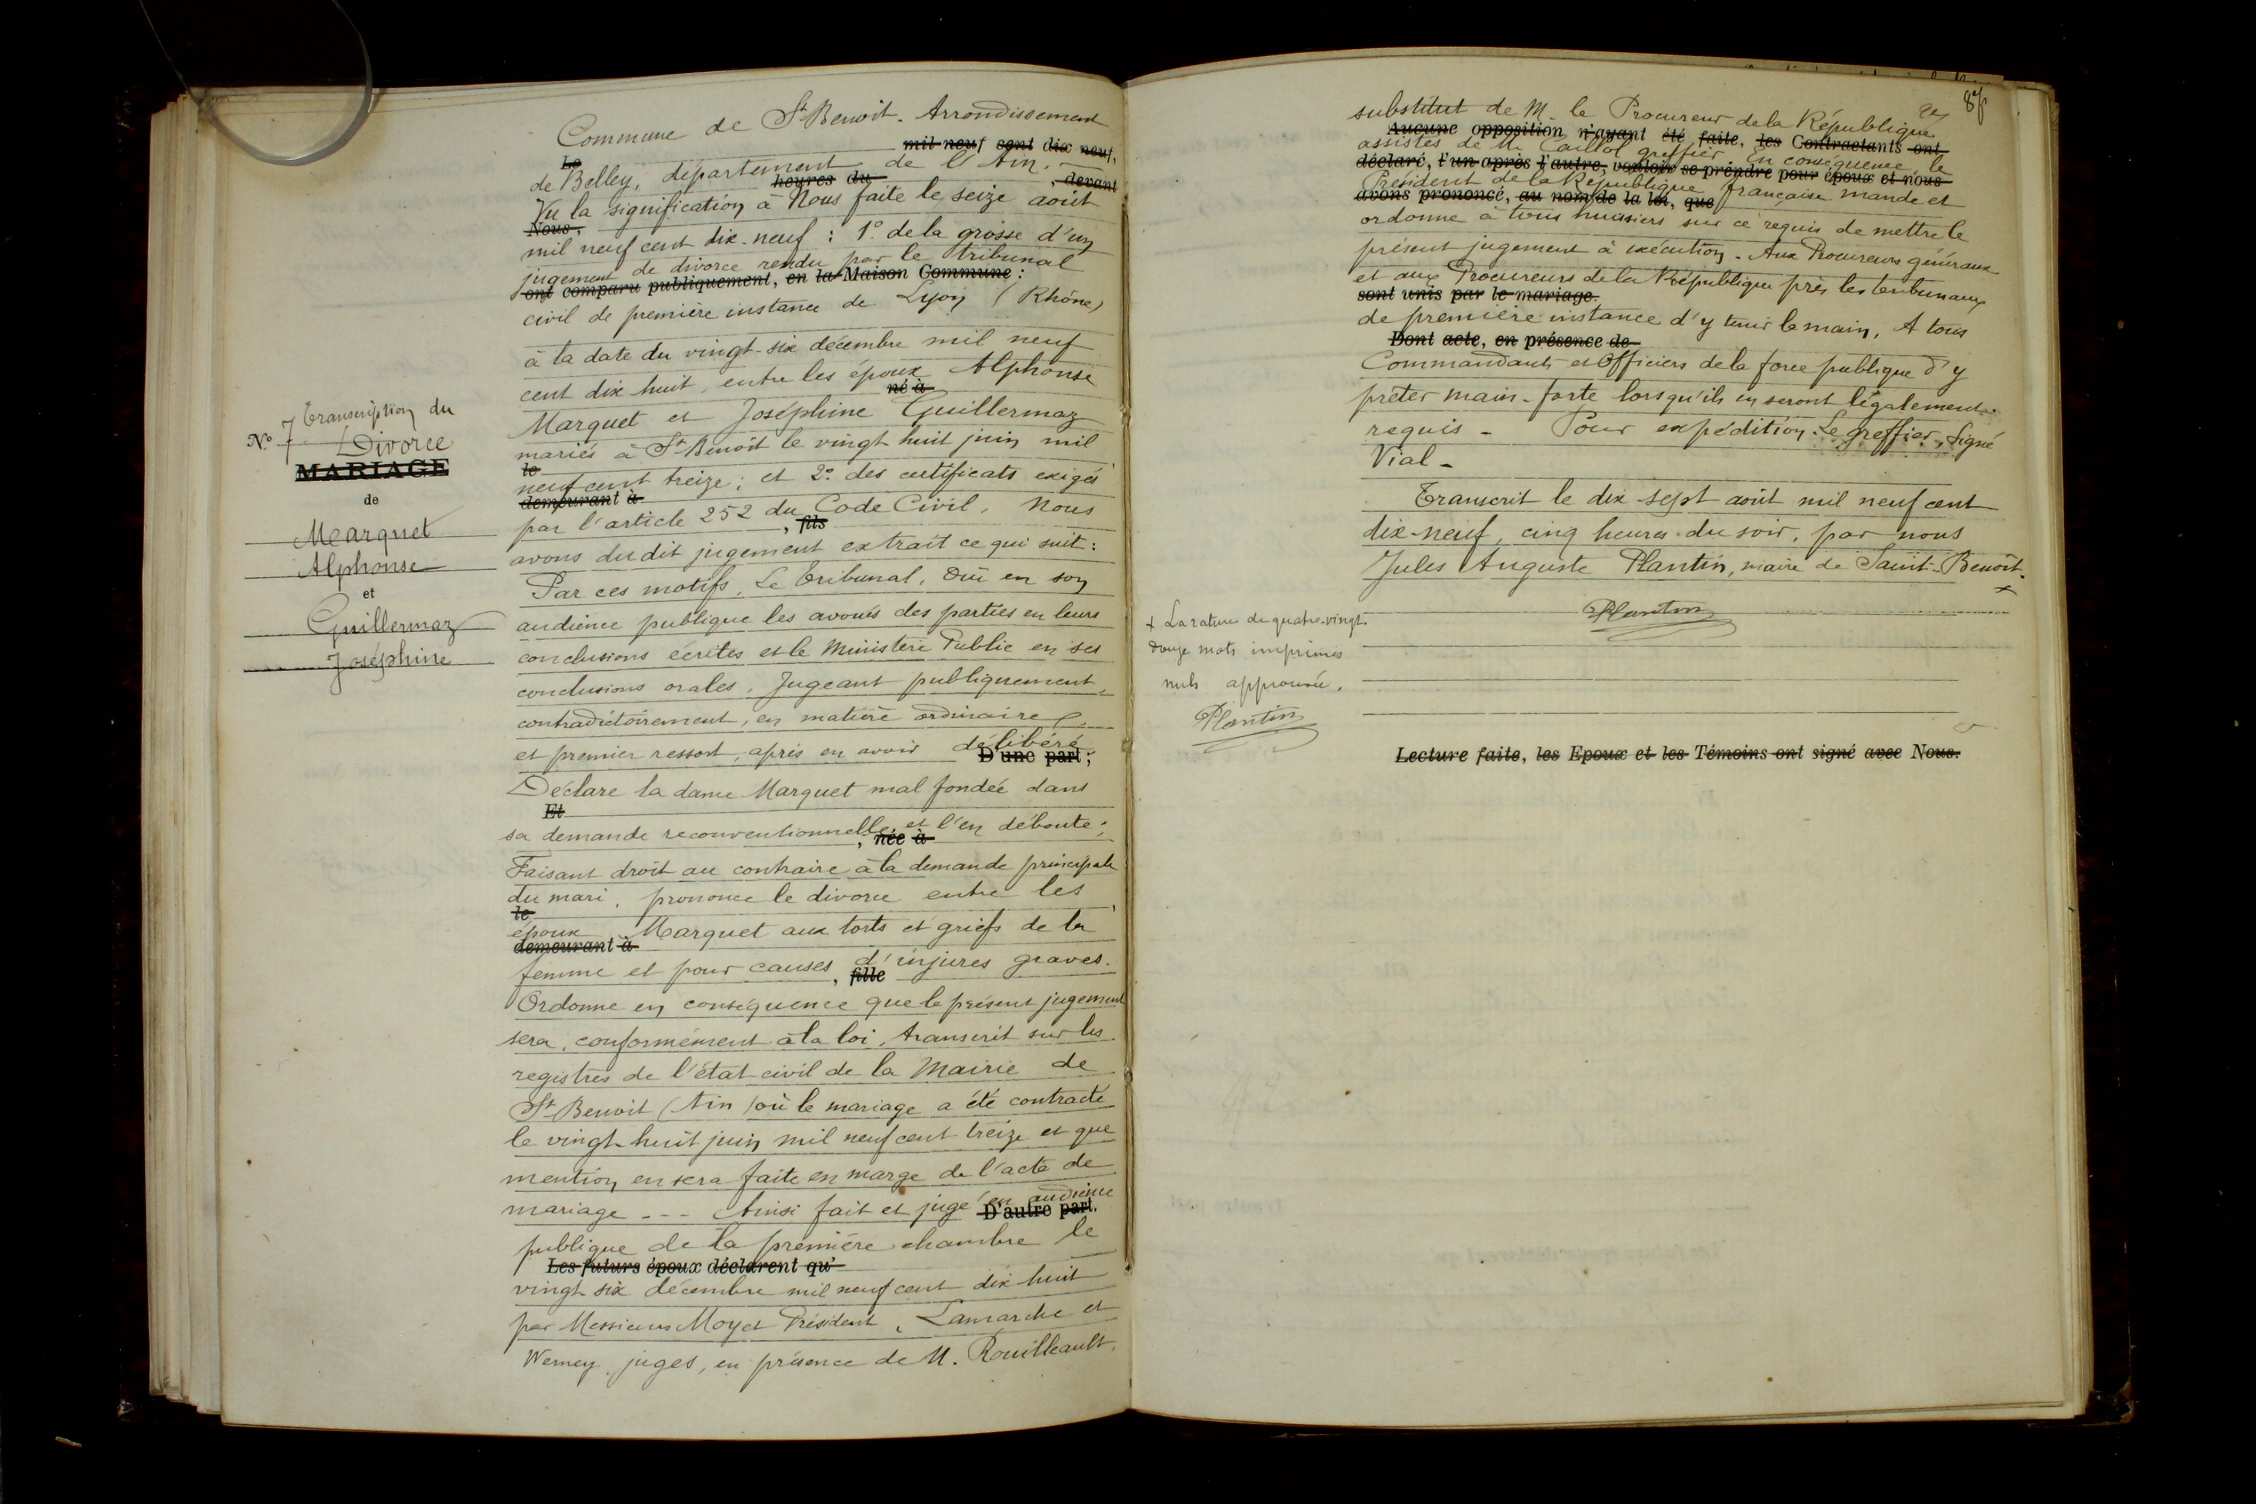 Commune de St Benoit. Arrondissement
mil neuf cent dix neuf,
Le
de Belley, département de l'Ain.
heures du , devant
Vu la signification à Nous faite le seize août
Nous,
mil neuf cent dix-neuf : 1° de la grosse d'un
jugement de divorce rendu par le tribunal
ont comparu publiquement, en la Maison Commune :
civil de première instance de Lyon (Rhône)
à la date du vingt-six décembre mil neuf
cent dix huit, entre les epoux Alphonse
né à
Marquet et Joséphine Guillermaz
mariés à St Benoit le vingt huit juin mil
le
neuf cent treize ; et 2° des certificats exigés
demeurant à
par l'article 252 du Code Civil, Nous
, fils
avons dudit jugement extrait ce qui suit :
Par ces motifs, Le Tribunal, Ouï en son
audience publique les avoués des parties en leurs
conclusions écrites et le Ministère Public en ses
conclusions orales, Jugeant publiquement,
contradictoirement, en matière ordinaire
et premier ressort, après en avoir délibéré
D'une part ;
Déclare la dame Marquet mal fondée dans
Et
sa demande reconventionnelle et l'en déboute ;
, née à
Faisant droit au contraire à la demande principale
du mari, prononce le divorce entre les
le
époux Marquet aux torts et griefs de la
demeurant à
femme et pour causes d'injures graves.
, fille
Ordonne en conséquence que le présent jugement
sera, conformément à la loi, transcrit sur les
registres de l'état civil de la Mairie de
St Benoit (Ain) où le mariage a été contracté
le vingt-huit juin mil neuf cent treize et que
mention en sera faite en marge de l'acte de
mariage - - - Ainsi fait et jugé en audience
D'autre part.
publique de la première chambre le
Les futurs époux déclarent qu'
vingt-six décembre mil neuf cent dix huit
par Messieurs Moyet Président, Lamarche et
Werney, juges, en présence de M. Rouilleault,
Transcription du
N° 7 Divorce
MARIAGE
de
Marquet
Alphonse
et
Guillermaz
Joséphine
87
substitut de M. le Procureur de la République
Aucune opposition n'ayant été faite, les Contractants ont
assistés de Me Caillol greffier. En conséquence, le
déclaré, l'un après l'autre, vouloir se prendre pour époux et nous
Président de la République française mande et
avons prononcé, au nom de la loi, que
ordonne à tous huissiers sur ce requis de mettre le
présent jugement à exécution. Aux Procureurs généraux
et aux Procureurs de la République près les tribunaux
sont unis par le mariage.
de première instance d'y tenir la main, A tous
Dont acte, en présence de
Commandants et Officiers de la force publique d'y
prêter main-forte lorsqu'ils en seront légalement
requis - Pour expédition. Le greffier, Signé
Vial -
Transcrit le dix-sept août mil neuf cent
dix-neuf, cinq heures du soir, par nous
Jules Auguste Plantin, maire de Saint-Benoît.
+
Plantin
+ La rature de quatre-vingt-
douze mots imprimés
nuls approuvée.
Plantin
Lecture faite, les Epoux et les Témoins ont signé avec Nous.